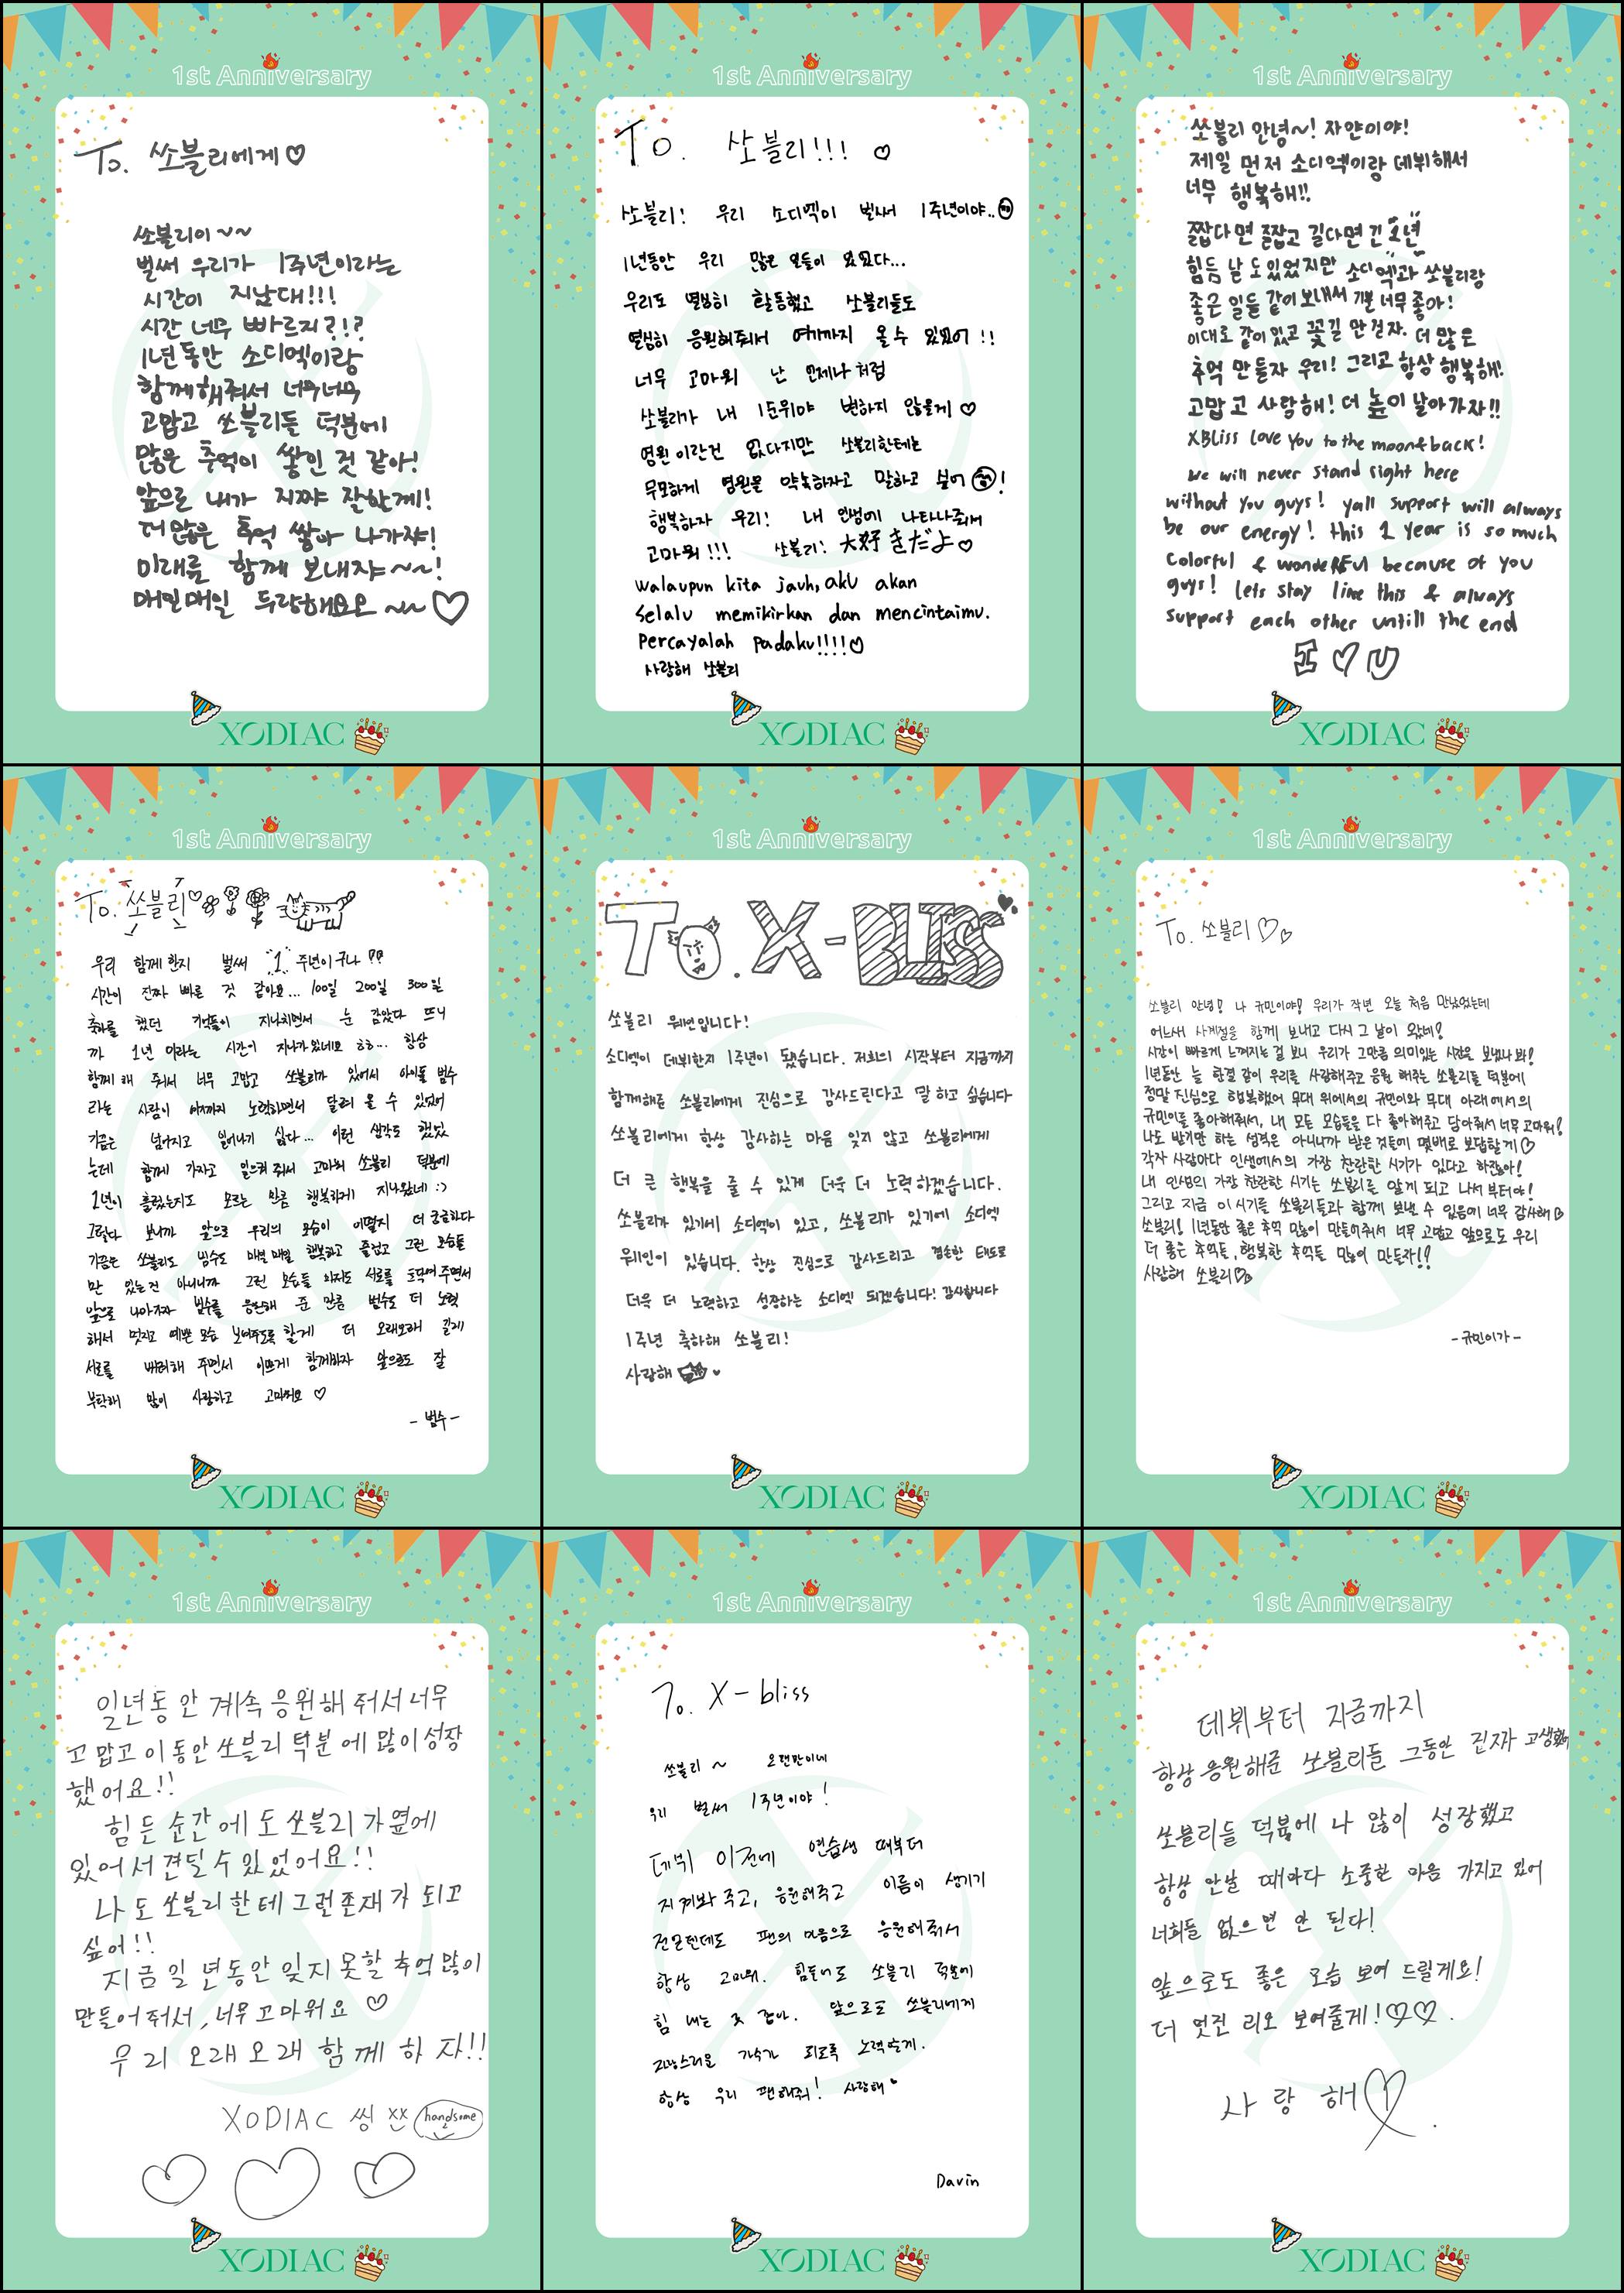 1st Anniversary
To. 쏘블리에게♡
쏘블리이~~
벌써 우리가 1주년이라는
시간이 지났대!!!
시간 너무 빠르지?!?
1년동안 소디엑이랑
함께해줘서 너무너무
고맙고 쏘블리들 덕분에
많은 추억이 쌓인 것 같아!
앞으로 내가 지짜 잘할게!
더 많은 추억 쌓아 나가쟈!
미래를 함께 보내쟈~~!
매일매일 두랑해요오 ~~♡
XODIAC
1st Anniversary
To. 쏘블리!!! ♡
쏘블리! 우리 소디엑이 벌써 1주년이야..
1년동안 우리 많은 일들이 있었다...
우리도 열심히 활동했고 쏘블리들도
열심히 응원해줘서 여기까지 올 수 있었어!!
너무 고마워 난 언제나처럼
쏘블리가 내 1순위야 변하지 않을게♡
영원이란건 없다지만 쏘블리한테는
무모하게 영원을 약속하자고 말하고 싶어!
행복하자 우리! 내 인생에 나타나줘서
고마워!!! 쏘블리! 大好きだよ♡
walaupun kita jauh, aku akan
selalu memikirkan dan mencintaimu.
Percayalah padaku!!!!♡
사랑해 쏘블리
XODIAC
1st Anniversary
쏘블리 안녕~! 자얀이야!
제일 먼저 소디엑이랑 데뷔해서
너무 행복해!!
짧다면 짧고 길다면 긴 1년
힘듬 날도 있었지만 소디엑과 쏘블리랑
좋은 일들 같이 보내서 기분 너무 좋아!
이대로 같이 있고 꽃길만 걷자. 더 많은
추억 만들자 우리! 그리고 항상 행복해!
고맙고 사랑해! 더 높이 날아가자!!
XBliss love you to the moon&back!
We will never stand right here
without you guys! yall support will always
be our energy! this 1 year is so much
colorful & wonderful because of you
guys! lets stay like this & always
support each other untill the end
I ♡ U
XODIAC
1st Anniversary
To. 쏘블리♡
우리 함께한지 벌써 1주년이구나??
시간이 진짜 빠른 것 같아요... 100일 200일 300일
축하를 했던 기억들이 지나치면서 눈 감았다 뜨니
까 1년 이라는 시간이 지나가있네요 ㅎㅎ... 항상
함께 해 줘서 너무 고맙고 쏘블리가 있어서 아이돌 범수
라는 사람이 여기까지 노력하면서 달려 올 수 있었어
가끔은 넘어지고 일어나기 싫다... 이런 생각도 했었
는데 함께 가자고 일으켜 줘서 고마워 쏘블리 덕분에
1년이 흘렀는지도 모르는 만큼 행복하게 지나왔네 :)
그렇다 보니까 앞으로 우리의 모습이 어떨지 더 궁금하다
가끔은 쏘블리도 범수도 매일 매일 행복하고 즐겁고 그런 모습들
만 있는건 아니니까 그런 모습들 마저도 서로를 토닥여 주면서
앞으로 나아가자 범수를 응원해 준 만큼 범수도 더 노력
해서 멋지고 예쁜 모습 보여주도록 할게 더 오래오래 길게
서로를 배려해 주면서 이쁘게 함께하자 앞으로도 잘
부탁해 많이 사랑하고 고마워요 ♡
- 범수 -
XODIAC
1st Anniversary
To. X-BLISS
쏘블리 웨인입니다!
소디엑이 데뷔한지 1주년이 됐습니다. 저희의 시작부터 지금까지
함께해준 쏘블리에게 진심으로 감사드린다고 말 하고 싶습니다
쏘블리에게 항상 감사하는 마음 잊지 않고 쏘블리에게
더 큰 행복을 줄 수 있게 더욱 더 노력하겠습니다.
쏘블리가 있기에 소디엑이 있고, 쏘블리가 있기에 소디엑
웨인이 있습니다. 항상 진심으로 감사드리고 겸손한 태도로
더욱 더 노력하고 성장하는 소디엑 되겠습니다! 감사합니다
1주년 축하해 쏘블리!
사랑해
XODIAC
1st Anniversary
To. 쏘블리♡♡
쏘블리 안녕! 나 규민이야! 우리가 작년 오늘 처음 만났었는데
어느새 사계절을 함께 보내고 다시 그 날이 왔네!
시간이 빠르게 느껴지는 걸 보니 우리가 그만큼 의미있는 시간을 보냈나 봐!
1년동안 늘 한결 같이 우리를 사랑해주고 응원 해주는 쏘블리들 덕분에
정말 진심으로 행복했어 무대 위에서의 규민이와 무대 아래에서의
규민이를 좋아해줘서, 내 모든 모습들을 다 좋아해주고 담아줘서 너무 고마워!
나도 받기만 하는 성격은 아니니까 받은 것들에 몇배로 보답할게♡
각자 사람마다 인생에서의 가장 찬란한 시기가 있다고 하잖아!
내 인생의 가장 찬란한 시기는 쏘블리를 알게 되고 나서 부터야!
그리고 지금 이 시기를 쏘블리들과 함께 보낼 수 있음에 너무 감사해♡
쏘블리! 1년동안 좋은 추억 많이 만들어줘서 너무 고맙고 앞으로도 우리
더 좋은 추억들, 행복한 추억들 많이 만들자!!
사랑해 쏘블리♡
- 규민이가 -
XODIAC
1st Anniversary
일년동안 계속 응원해 줘서 너무
고맙고 이 동안 쏘블리 턱분에 많이 성장
했어요!!
힘든 순간에도 쏘블리가 옆에
있어서 견딜 수 있었어요!!
나도 쏘블리한테 그런 존재가 되고
싶어!!
지금 일 년동안 잊지 못할 추억 많이
만들어 줘서, 너무 고마워요 ♡
우리 오래오래 함께 하자!!
XODIAC 씽 handsome
XODIAC
1st Anniversary
To. X-bliss
쏘블리 ~ 오랜만이네
우리 벌써 1주년이야!
데뷔 이전에 연습생 때부터
지켜봐 주고, 응원해주고 이름이 생기기
전인데도 팬의 마음으로 응원해줘서
항상 고마워. 힘들어도 쏘블리 덕분에
힘 내는 것 같아. 앞으로도 쏘블리에게
자랑스러운 가수가 되도록 노력할게.
항상 우리 팬해줘! 사랑해
Davin
XODIAC
1st Anniversary
데뷔부터 지금까지
항상 응원해준 쏘블리들 그동안 진짜 고생했어
쏘블리들 덕분에 나 많이 성장했고
항상 만날 때마다 소중한 마음 가지고 있어
너희들 없으면 안 된다!
앞으로도 좋은 모습 보여 드릴게요!
더 멋진 리오 보여줄게!♡♡.
사랑해♡.
XODIAC